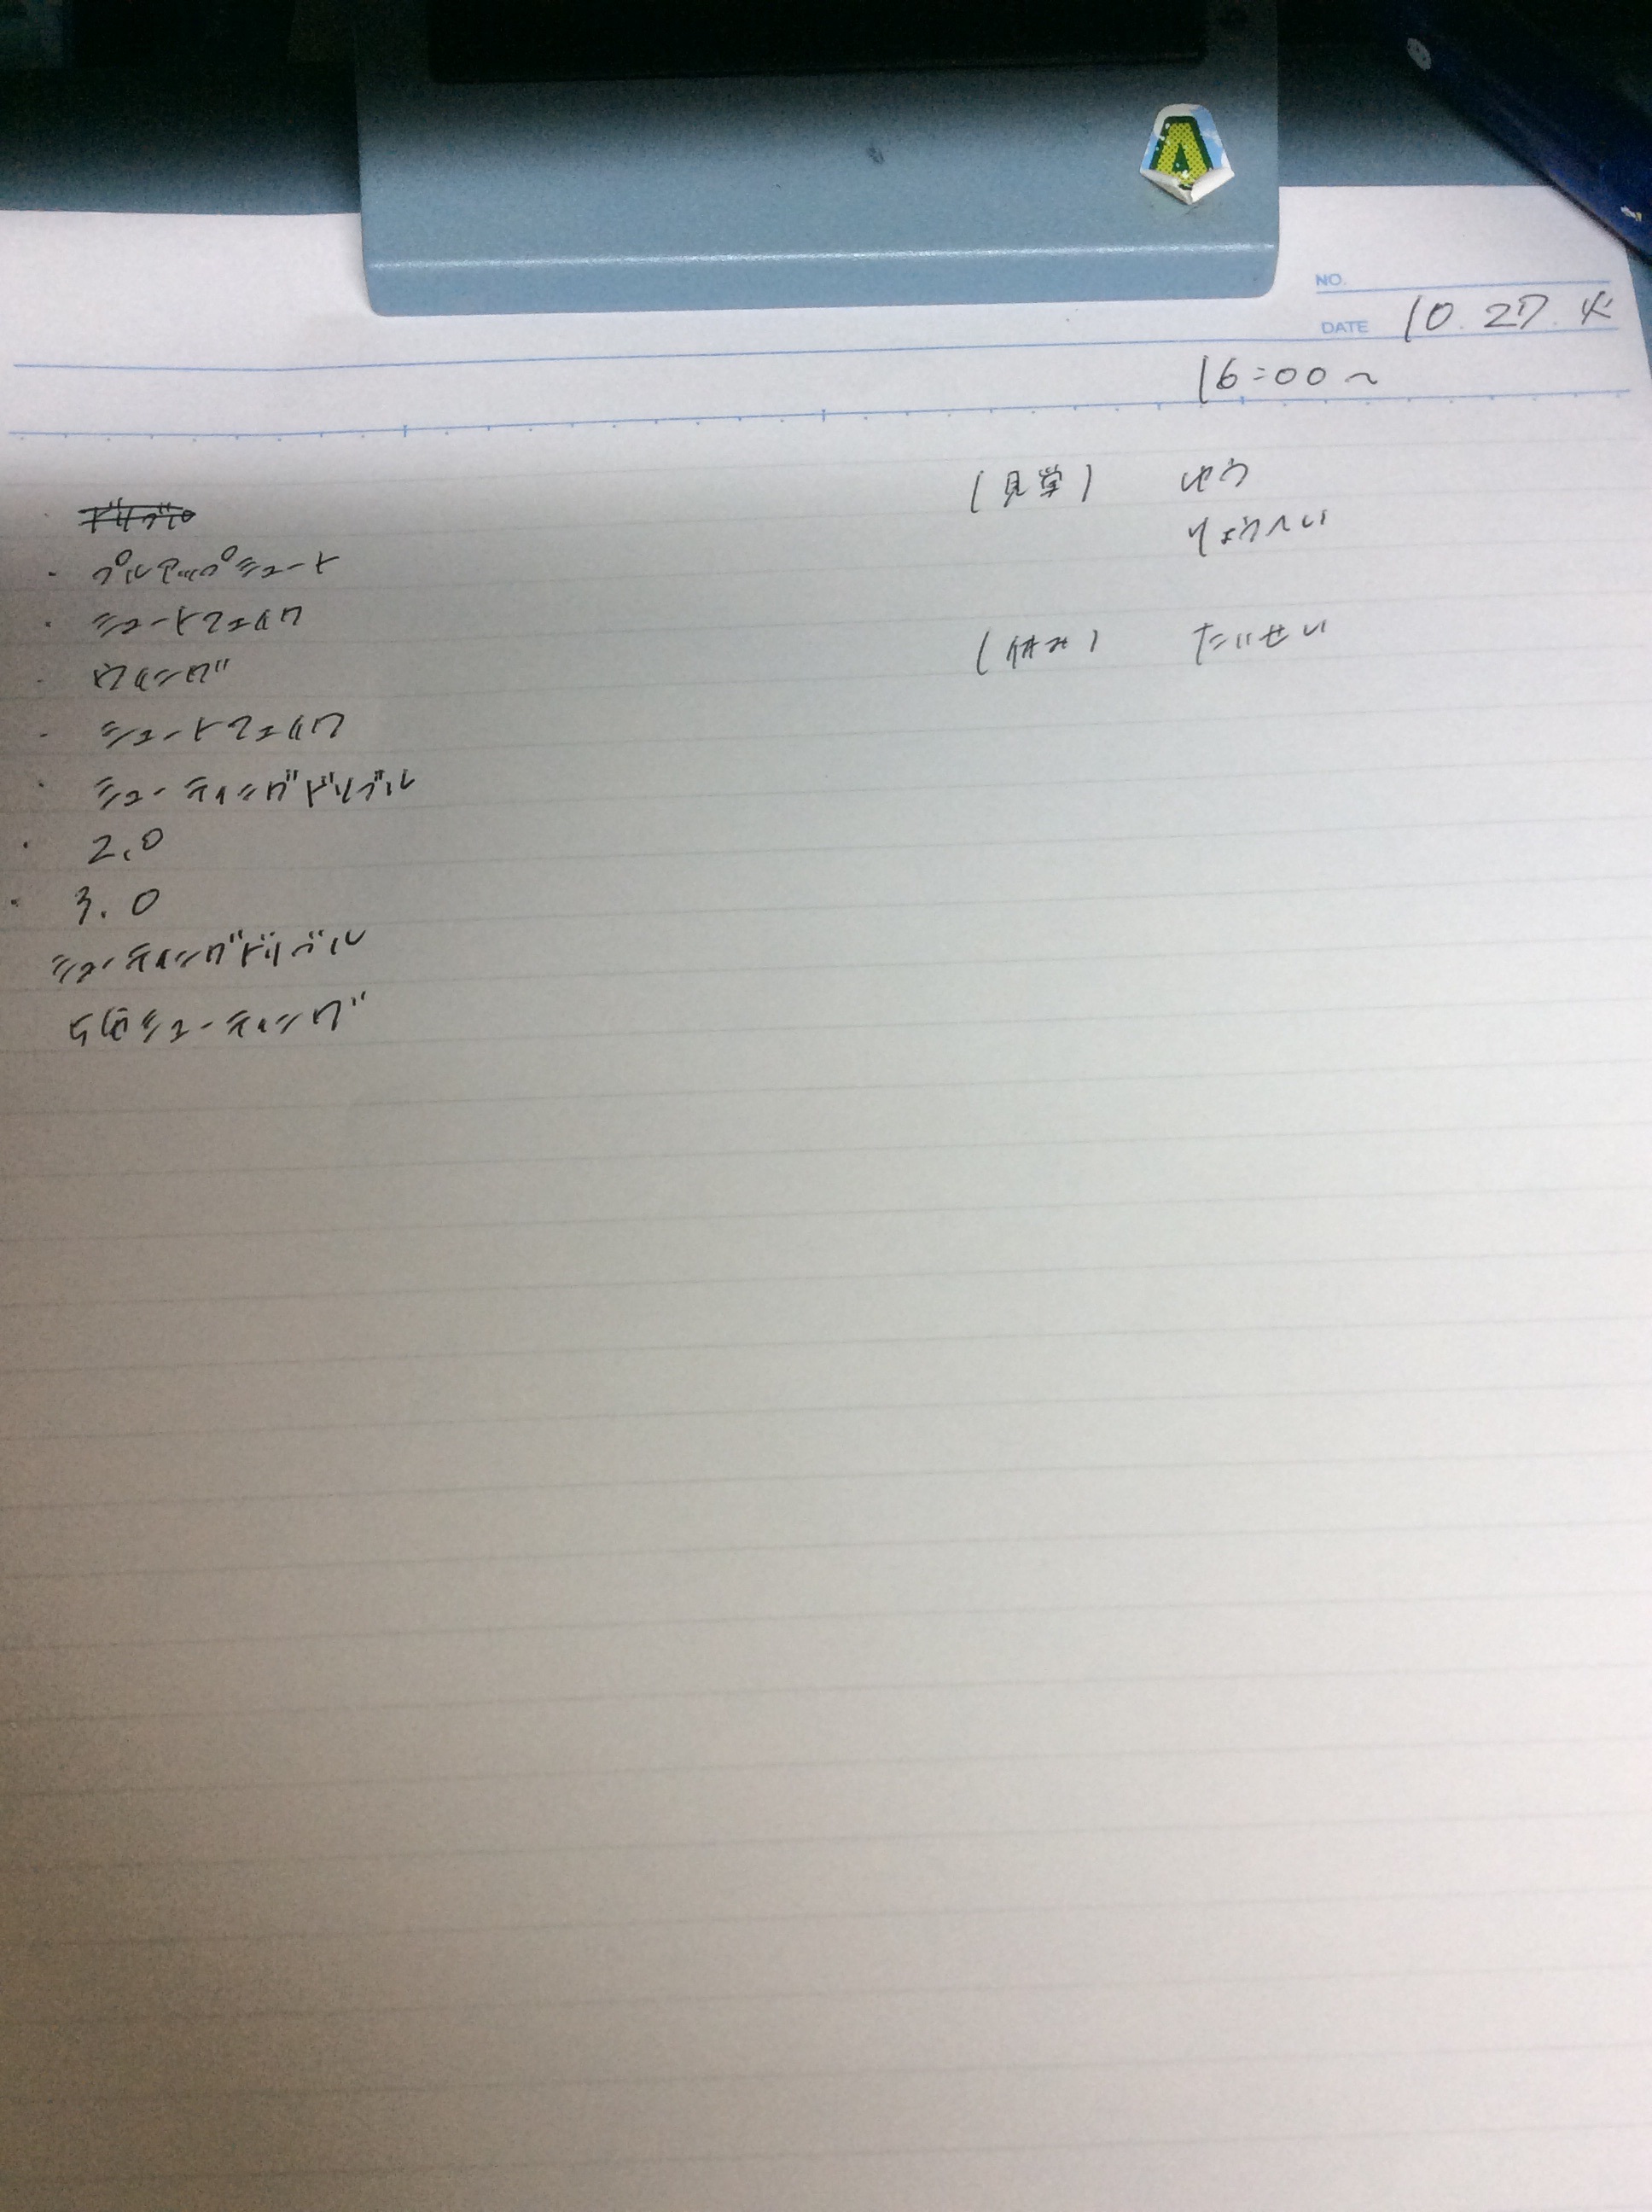 NO.
DATE 10.27.火
16:00〜
(見学) ゆう
りょうへい
(休み) たいせい
・ドリブル
・プルアップシュート
・シュートフェイク
・ウィング
・シュートフェイク
・シューティングドリブル
・2.0
・3.0
シューティングドリブル
シューティング